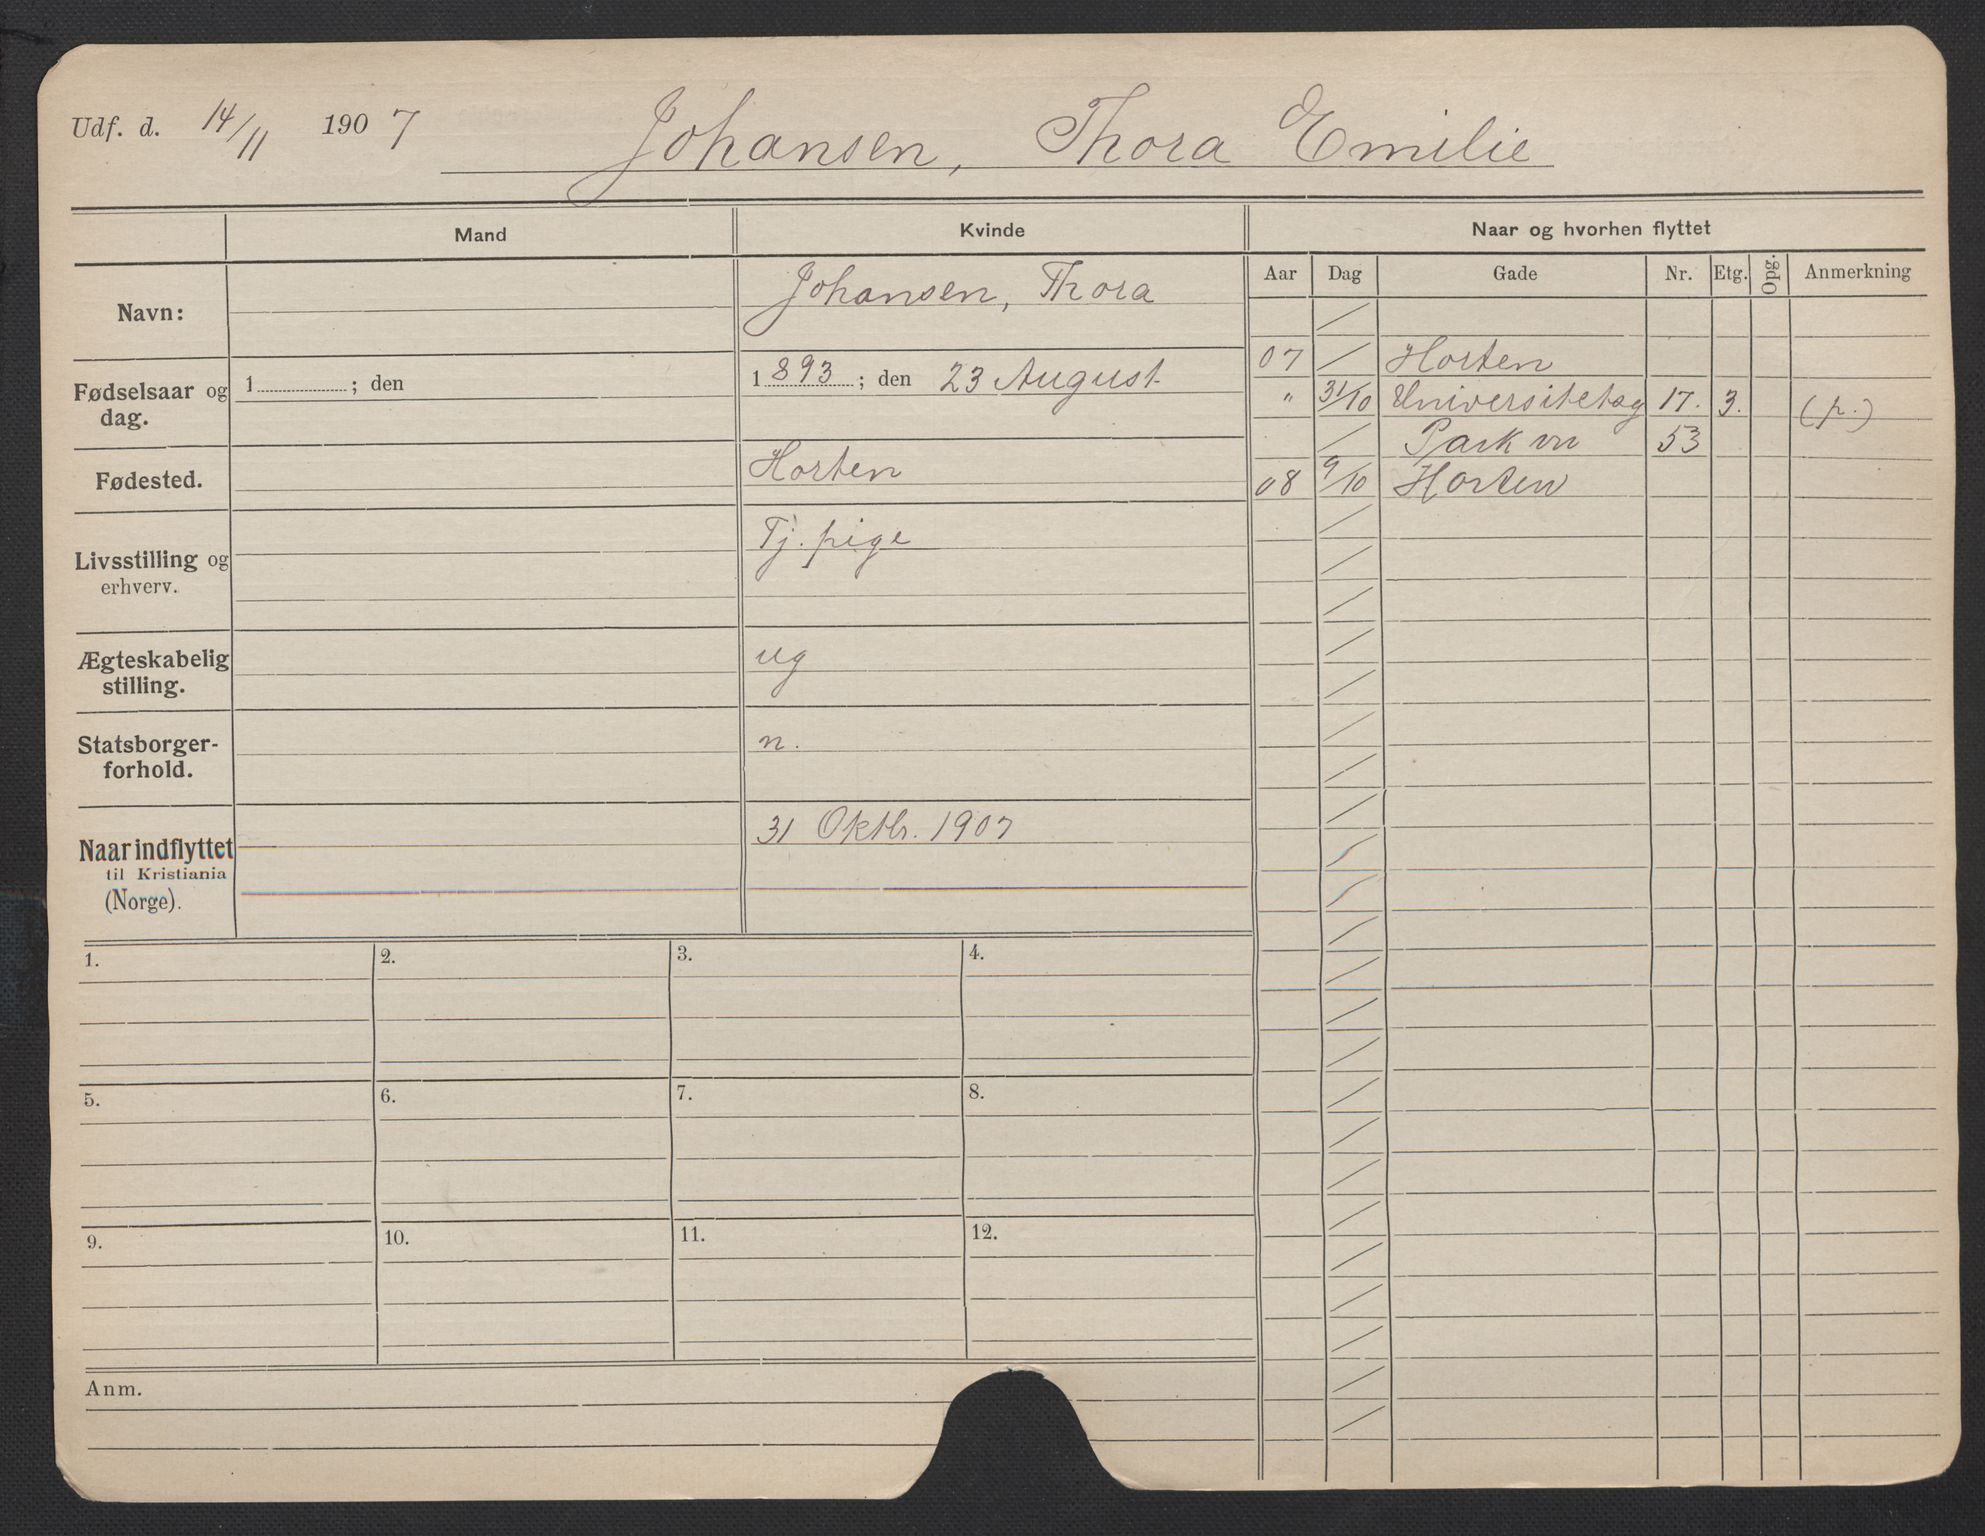 Udf. d. 14/11 1907 Johansen, Thora Emilie
Mand Kvinde Naar og hvorhen flyttet
Aar Dag Gade Nr. Etg. Opg. Anmerkning
Navn: Johansen, Thora
Fødselsaar og dag. 1 ; den 1893 ; den 23 August
Fødested. Horten
Livsstilling og erhverv. Tj. pige
Ægteskabelig stilling. ug
Statsborger-forhold. n.
Naar indflyttet til Kristiania (Norge). 31 Oktbr. 1907
07 / Horten
" 31/10 Universitetsg 17. 3. (p.)
/ Park vn 53
08 9/10 Horten
1. 2. 3. 4.
5. 6. 7. 8.
9. 10. 11. 12.
Anm.